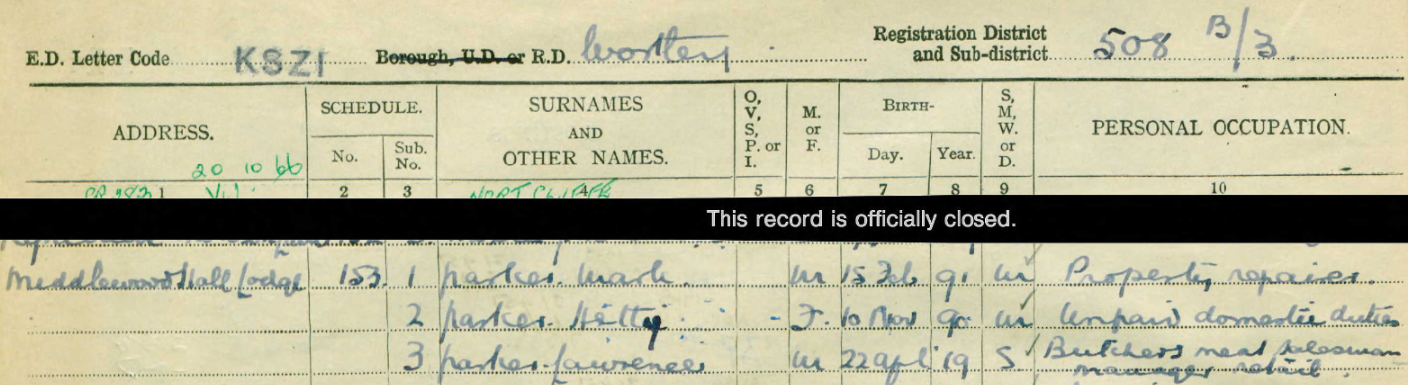 E.D. Letter Code KSZI Borough, U.D. or R.D. Wortley Registration District and Sub-district 508 B/3.
ADDRESS. SCHEDULE. No. Sub. No. SURNAMES AND OTHER NAMES. O, V, S, P. or I. M. or F. BIRTH- Day. Year. S, M, W. or D. PERSONAL OCCUPATION.
20 10 66
1 2 3 4 5 6 7 8 9 10
NORTCLIFFE
This record is officially closed.
Middlewood Hall Lodge 153 1 Parker. Mark. M 15 Feb 91 M Property repairer.
2 Parker. Hetty - F. 10 Nov 90 M Unpaid domestic duties
3 Parker. Lawrence M 22 Apl 19 S Butchers meat salesman
manager retail.